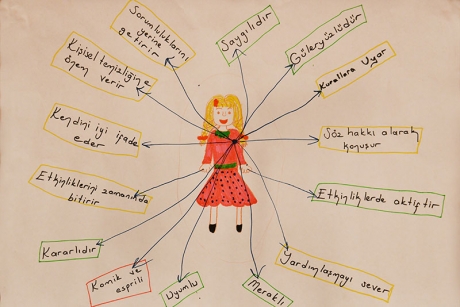 Sorumluluklarını
yerine
getirir
Saygılıdır
Güleryüzlüdür
Kişisel temizliğine
önem verir
Kurallara Uyar
Kendini iyi ifade
eder
Söz hakkı alarak
konuşur
Etkinliklerini zamanında
bitirir
Etkinliklerde aktiftir
Kararlıdır
Komik ve
esprili
Uyumlu
Meraklı
Yardımlaşmayı sever